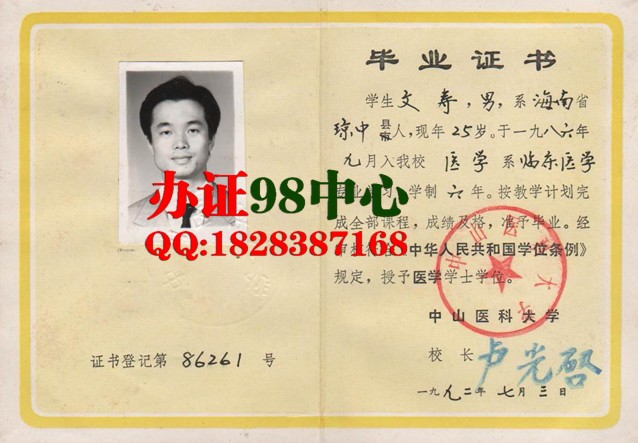 毕业证书
学生文寿，男，系海南省
琼中县市人，现年25岁。于一九八六年
九月入我校 医学 系临床医学
学制六年。按教学计划完
成全部课程，成绩及格，准予毕业。经
《中华人民共和国学位条例》
规定，授予医学学士学位。
中山医科大学
校长 卢光启
一九九二年七月三日
证书登记第 86261 号
办证98中心
QQ:1828387168